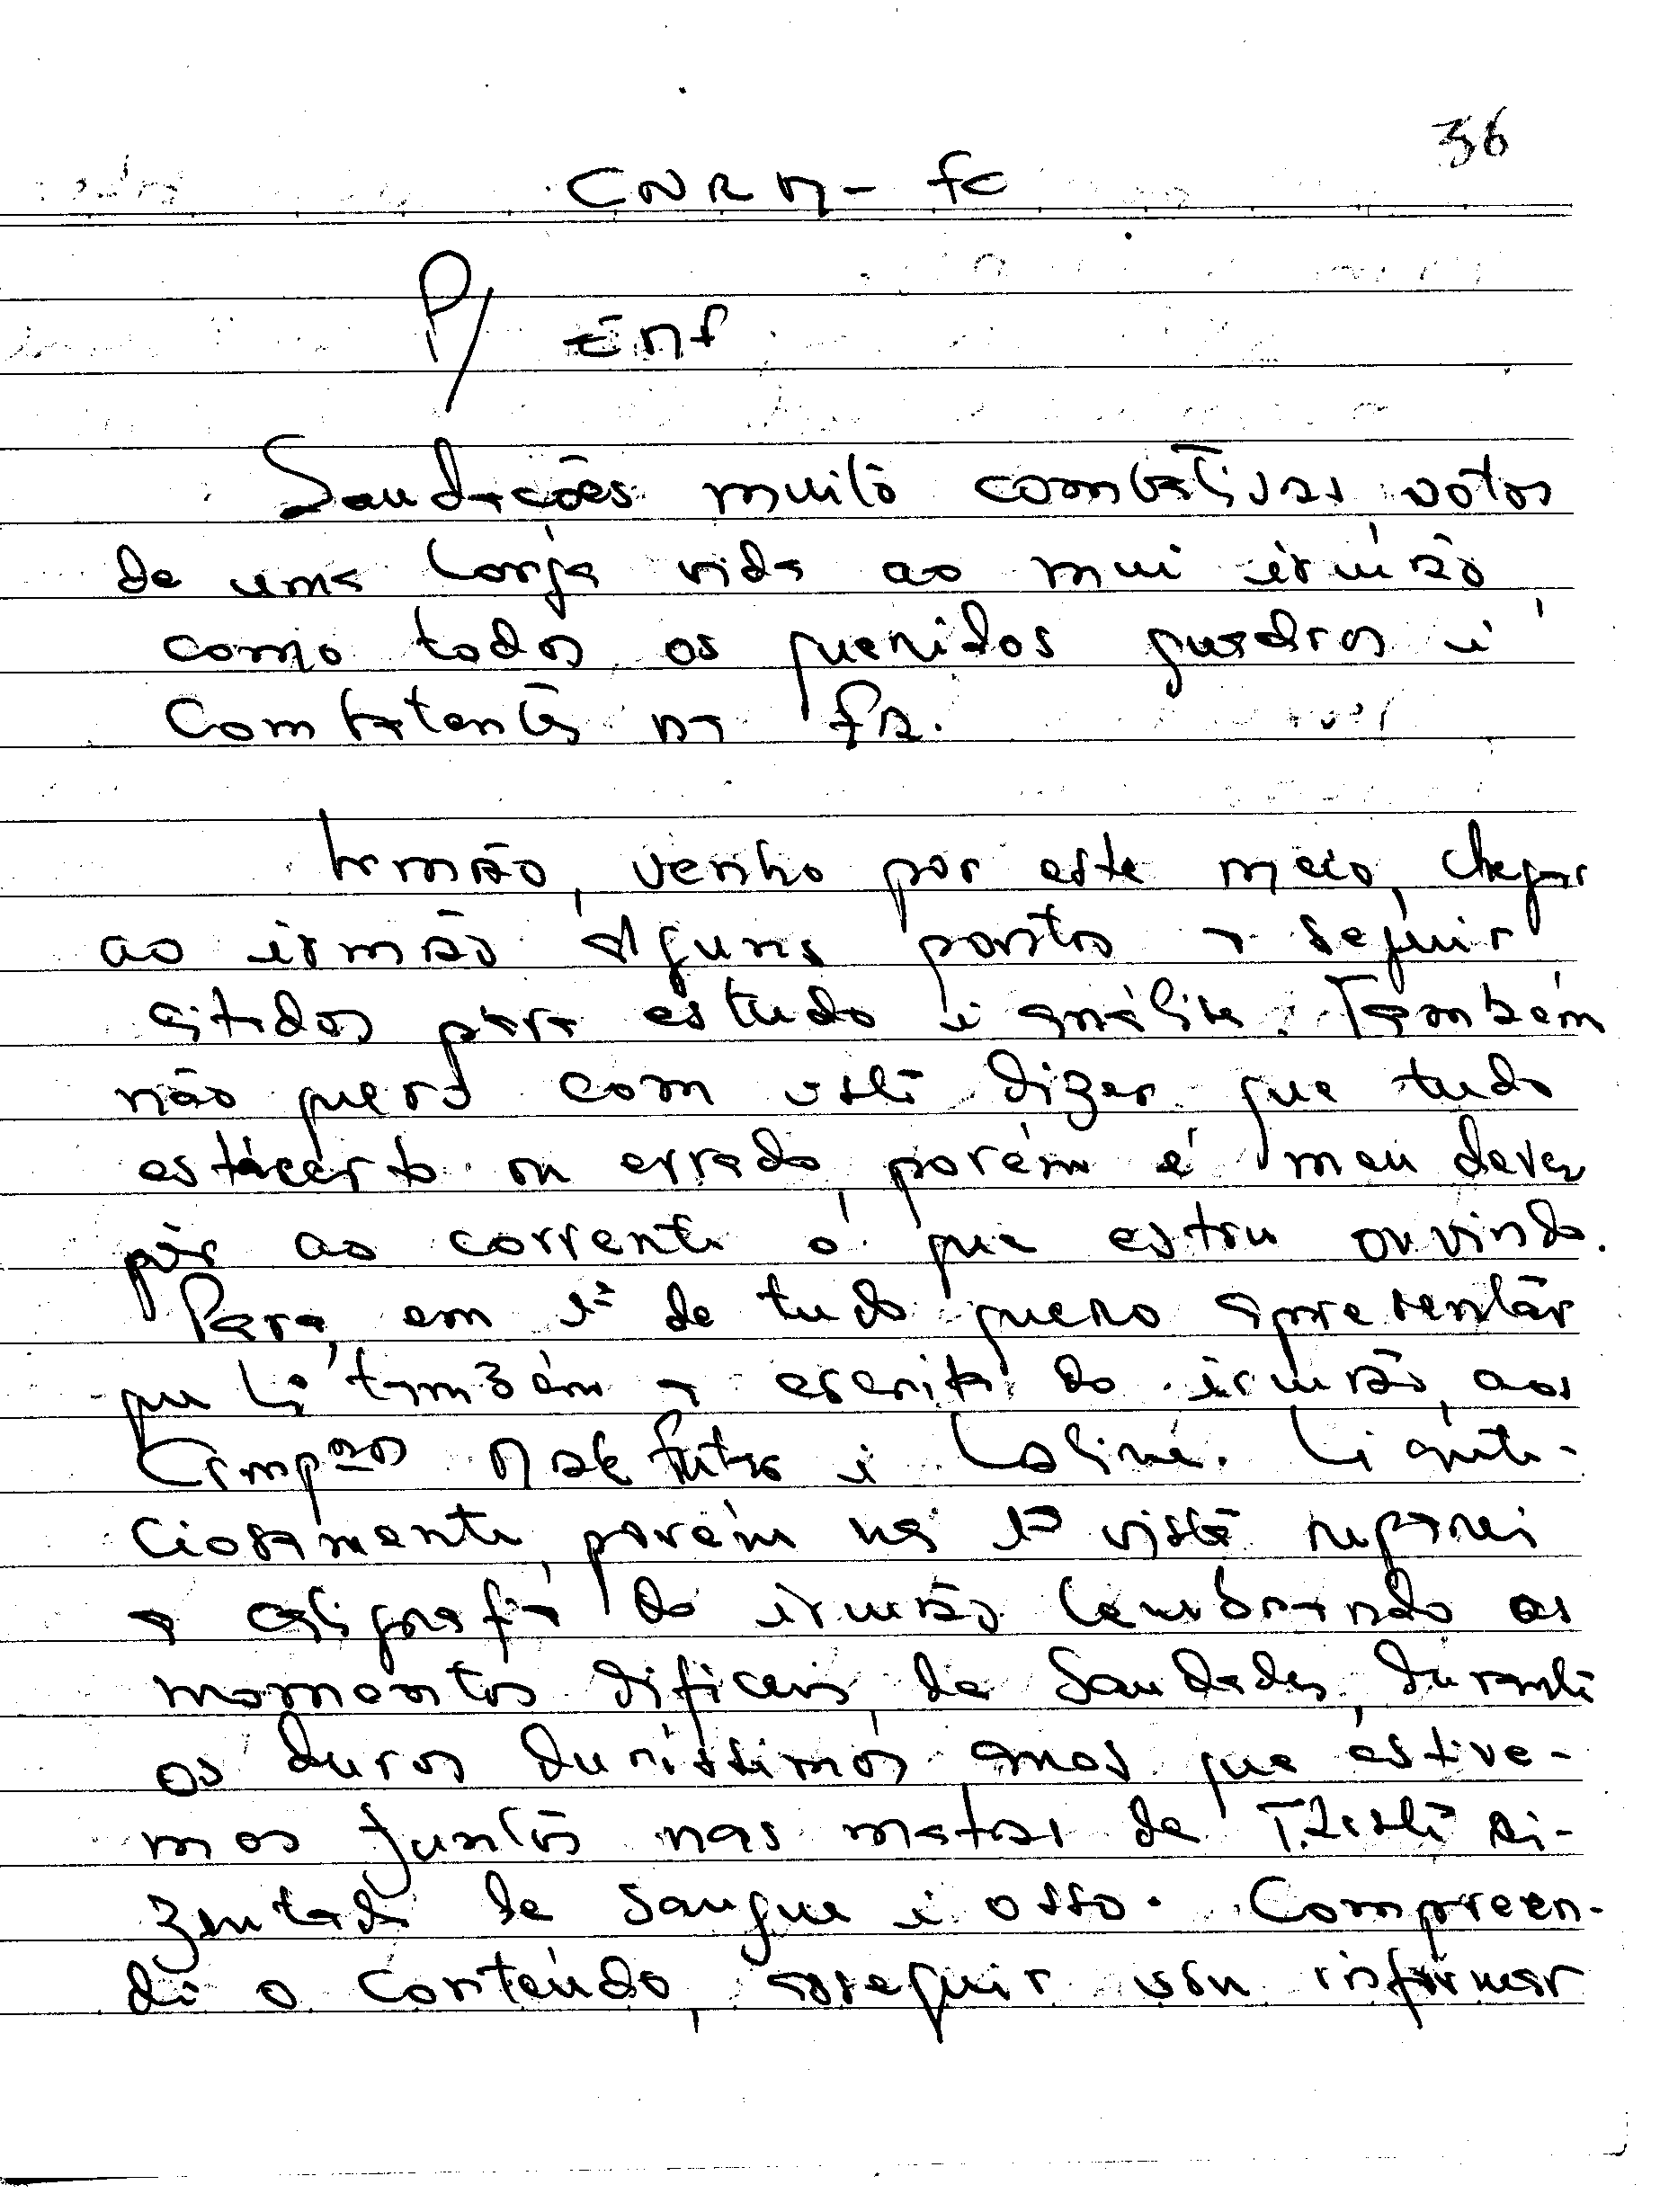 36
CNRM - FC
P/ ENF
Saudações muito combativas votos
de uma longa vida ao mui irmão
como todos os queridos quadros i
Combatentes na FR.
Irmão, venho por este meio, chegar
ao irmão alguns pontos a seguir
citados para estudo i análise. Também
não quero com isti dizer que tudo
está certo ou errado, porém é meu dever
pôr ao correnti o que estou ouvindo.
Para, em 1º de tudo quero apresentar
que li também a escrita do irmão, aos
Compºs i Laliné. Li
ciosamenti, porém na 1ª vista reparei
a caligrafia do irmão lembrando os
momentos dificeis de Saudades, duranti
os duros durissimos anos que estive-
mos juntos nas matas de T.Lesti
de sangue i osso. Compreen-
di o contéudo, aseguir vou informar